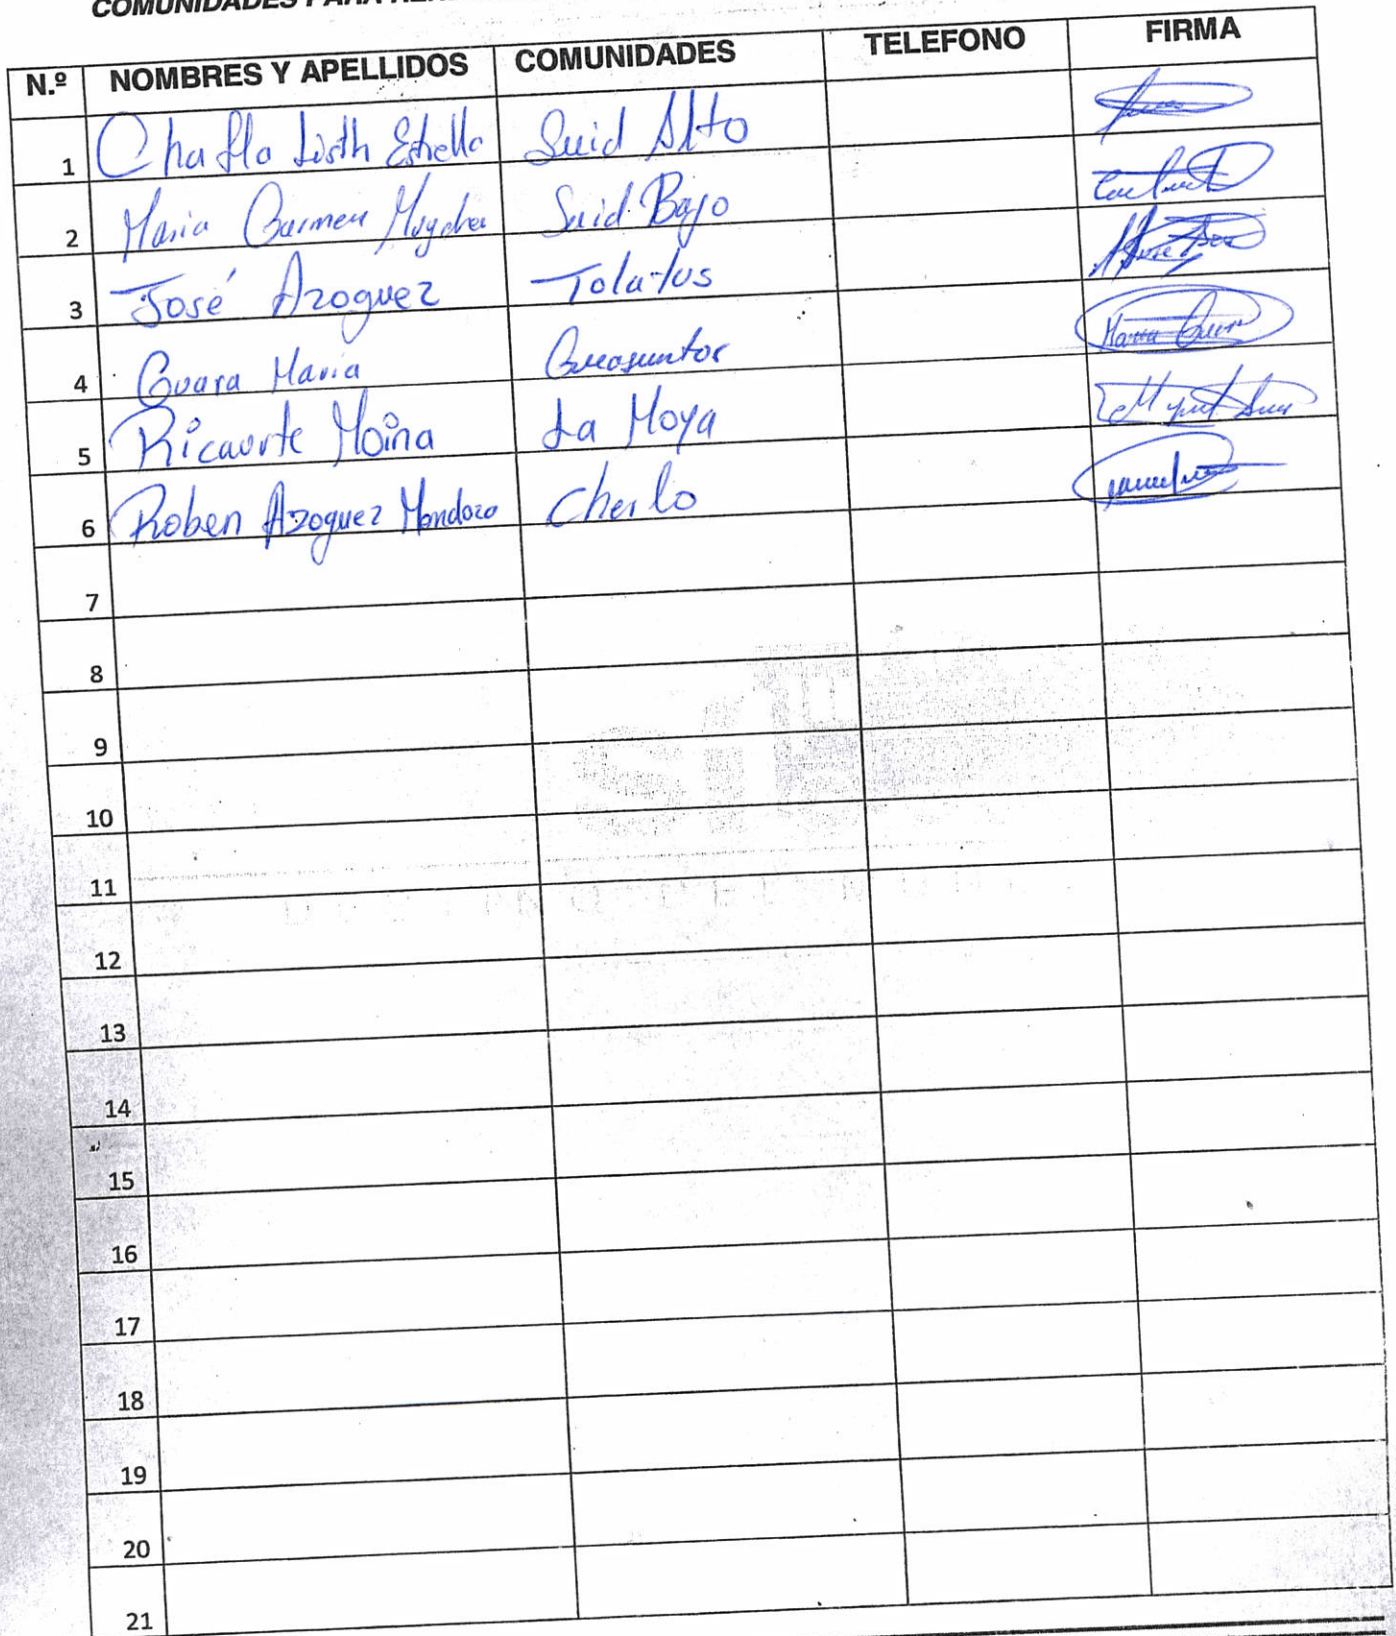 COMUNIDADES PARA
N.º NOMBRES Y APELLIDOS COMUNIDADES TELEFONO FIRMA
1 Chaflo Listh Estrella Suid Alto
2 Maria Carmen Suid Bajo
3 José Azoguez Tolatus
4 Guara Maria
5 Ricaurte Moina La Moya
6 Roben Azoguez Mendoza Cherlo
7
8
9
10
11
12
13
14
15
16
17
18
19
20
21